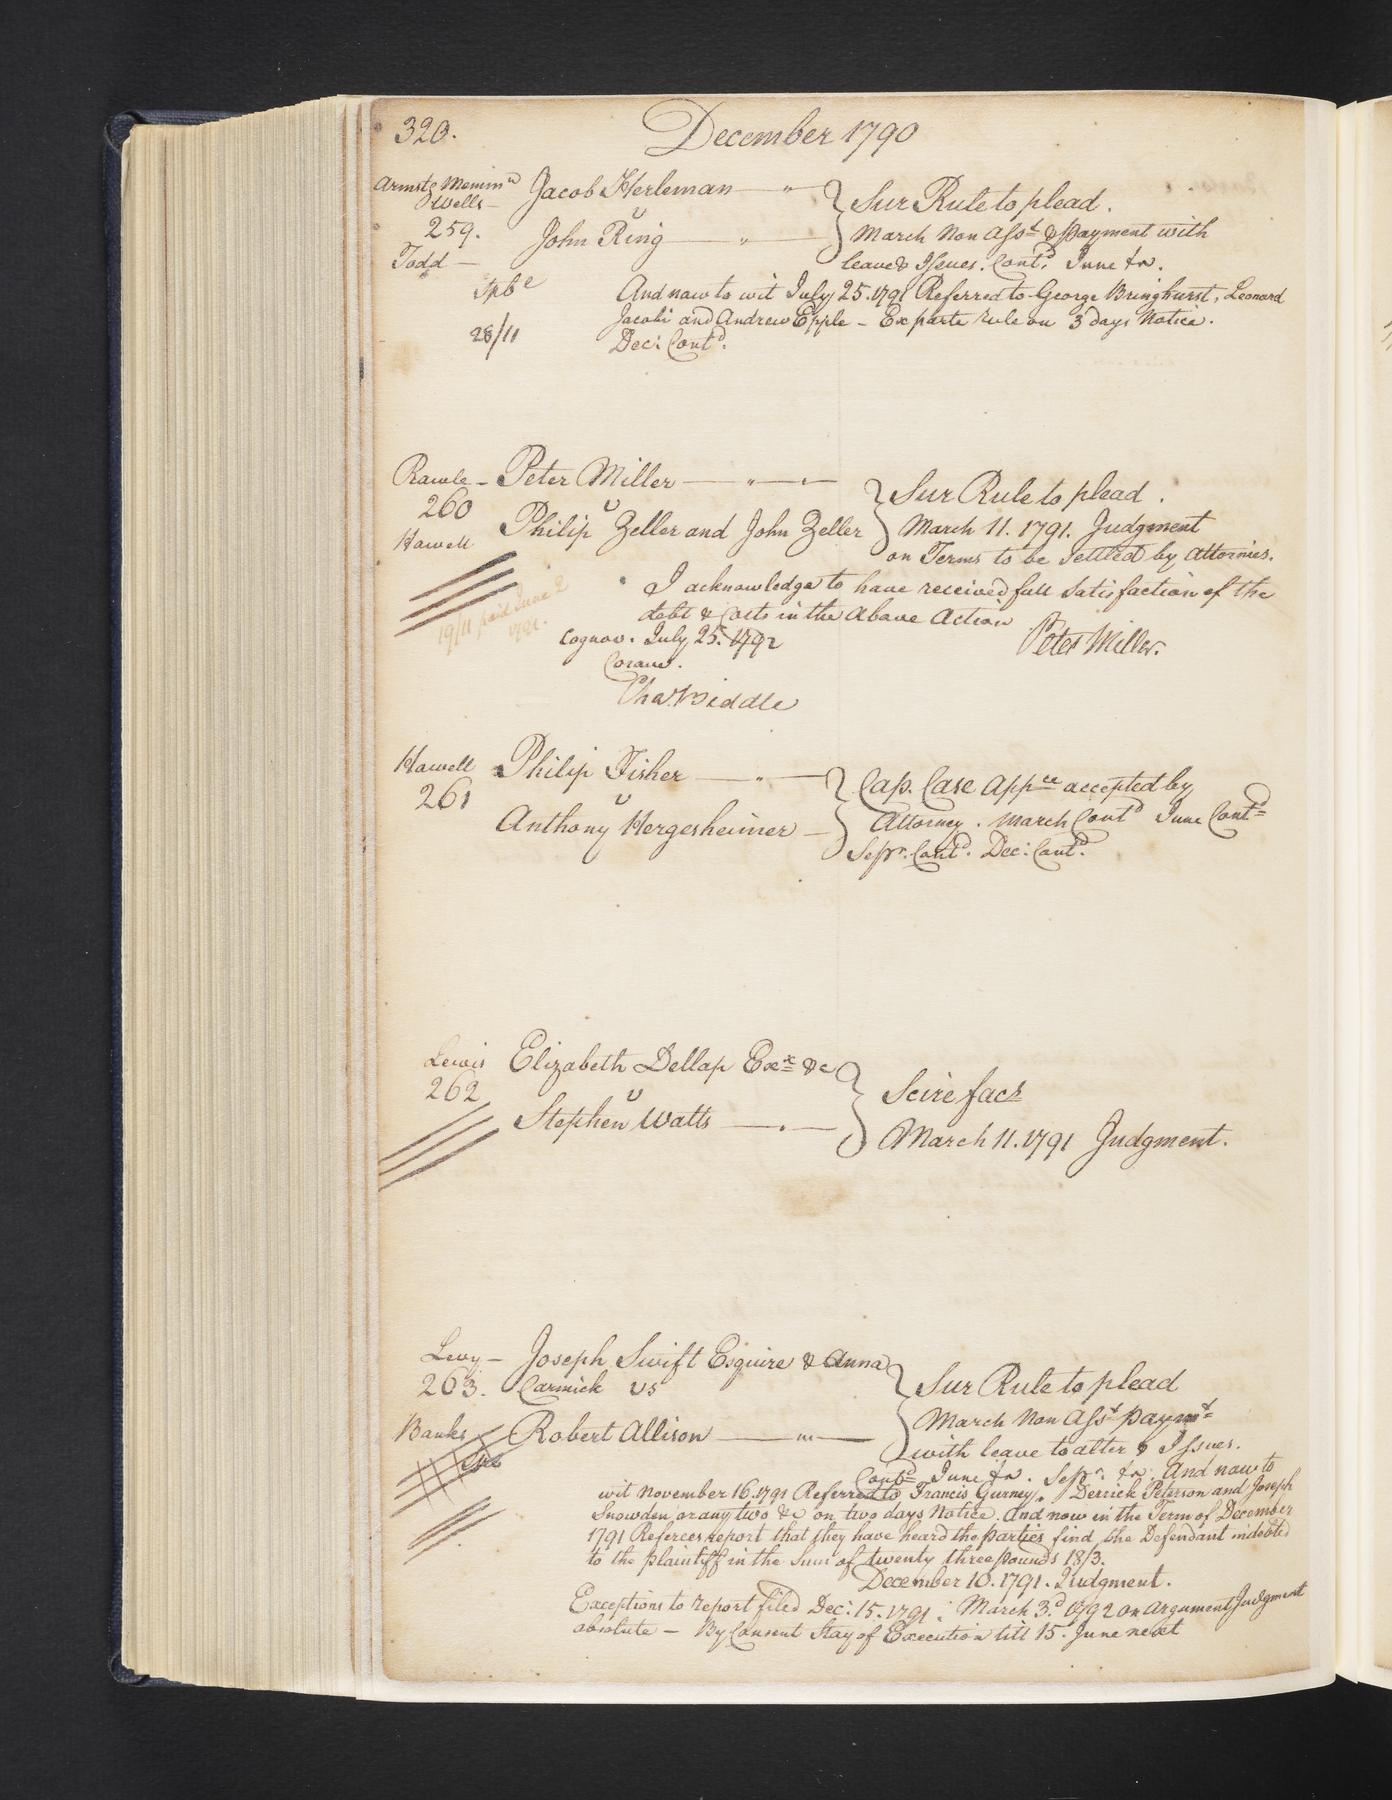 320.
December 1790
Armstg Memmd
& Wells
Jacob Herleman
v
259.
John Ring
Todd
Sur Rule to plead.
March Non Asst & Payment with
leave & Issues. Contd. June &c.
And now to wit July 25. 1791 Referred to George Bringhurst, Leonard
28/11
Jacobi and Andrew Epple - Ex parte rule on 3 days Notice.
Dec: Contd.
Rawle - Peter Miller
260
v
Howell
Philip Zeller and John Zeller
Sur Rule to plead.
March 11. 1791. Judgment
on Terms to be settled by Attornies.
19/11 paid June 2
1791.
I acknowledge to have received full Satisfaction of the
debt & Costs in the Above Action
Peter Miller.
Cognov. July 25. 1792
Coram.
Cha. Biddle
Howell
261
Philip Fisher
v
Anthony Hergesheimer
Cap. Case Appce accepted by
Attorney. March Contd June Contd
Sepr. Contd. Dec: Contd.
Lewis
262
Elizabeth Dellap Exx &c
v
Stephen Watts
Scire facs
March 11. 1791 Judgment.
Levy - Joseph Swift Esquire & Anna
263. Carmick vs
Banks
Robert Allison
Sur Rule to plead
March Non Asst Paymt
with leave to alter & Issues.
Contd June &c. Sepr. &c. And now to
wit November 16. 1791 Referred to Francis Gurney, Derrick Peterson and Joseph
Snowden or any two &c on two days Notice. And now in the Term of December
1791 Referees report that they have heard the parties find the Defendant indebted
to the plaintiff in the Sum of twenty three pounds 18/3.
December 10. 1791. Judgment.
Exceptions to report filed Dec: 15. 1791: March 3.d 1792 on argument Judgment
absolute - By Consent Stay of Execution till 15. June next